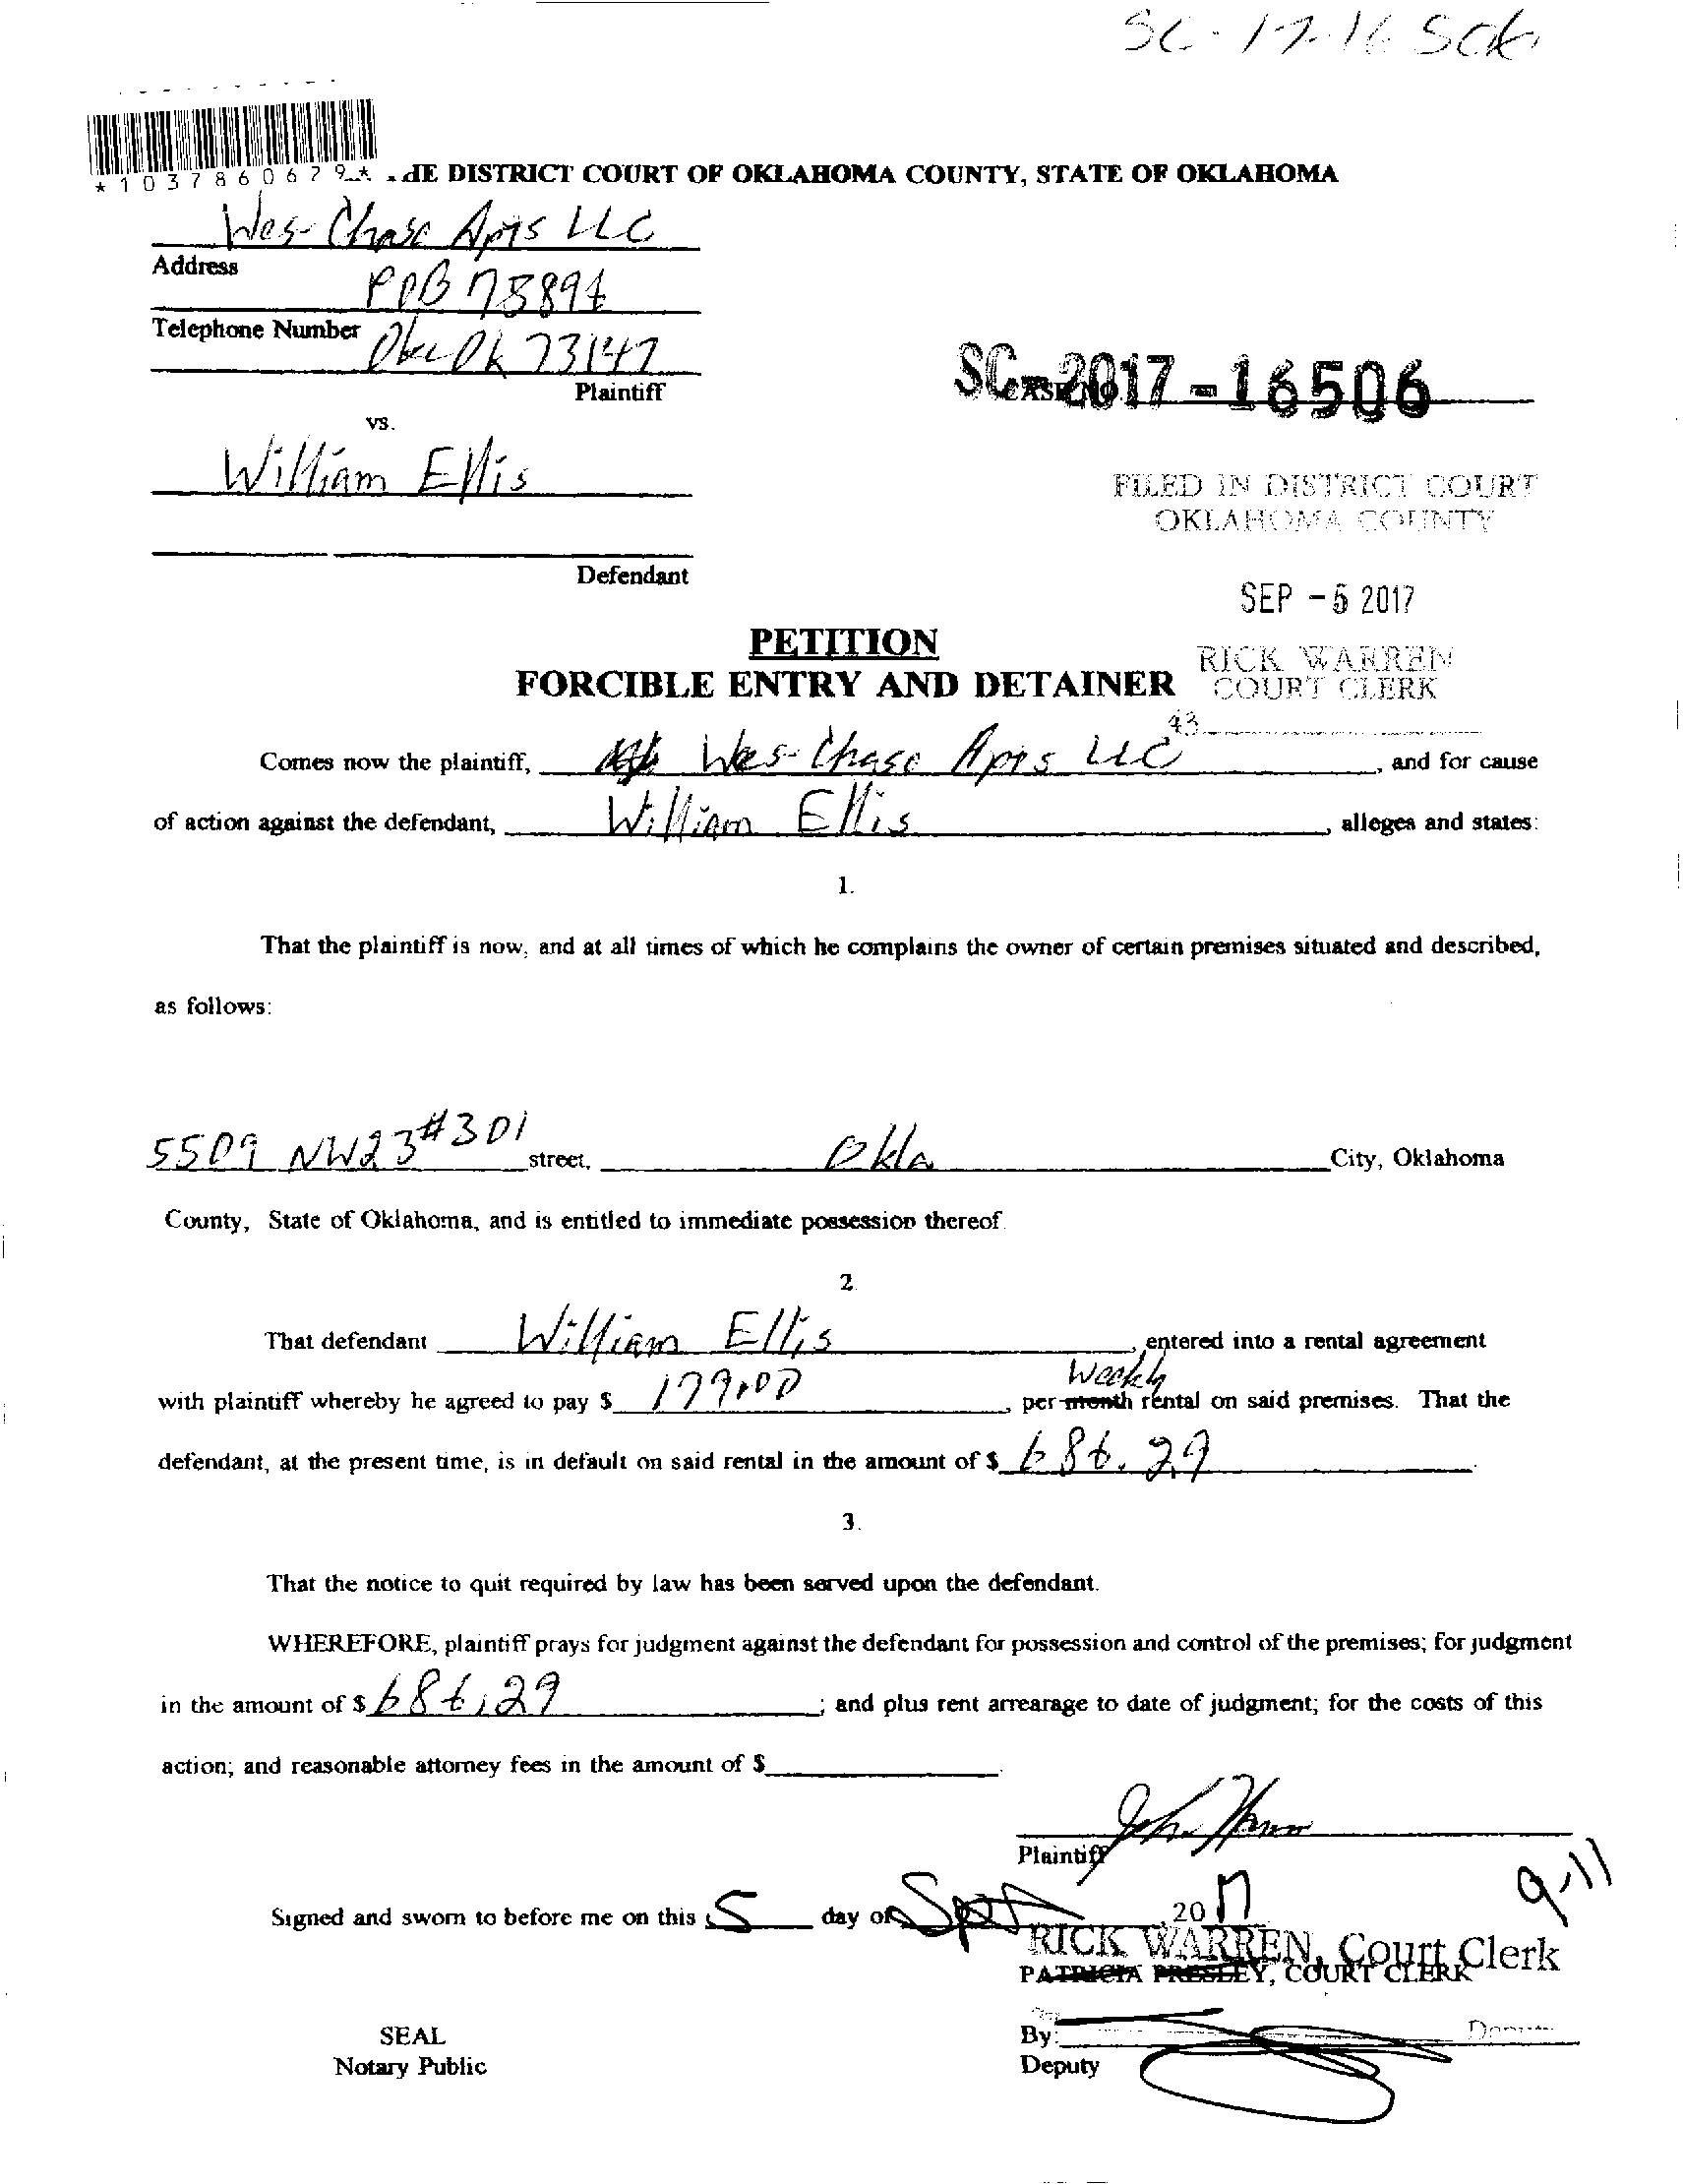 *1037860679*
DISTRICT COURT OF OKLAHOMA COUNTY, STATE OF OKLAHOMA
Wes-Chase Apts LLC
Address
POB 75894
Telephone Number
Okc Ok 73147
Plaintiff
SC-2017-16506
CASE NO.
vs.
William Ellis
FILED IN DISTRICT COURT
OKLAHOMA COUNTY
Defendant
SEP -5 2017
PETITION
RICK WARREN
FORCIBLE ENTRY AND DETAINER
COURT CLERK
43
Comes now the plaintiff, Wes-Chase Apts LLC, and for cause
of action against the defendant, William Ellis, alleges and states:
1.
That the plaintiff is now, and at all times of which he complains the owner of certain premises situated and described,
as follows:
5509 NW23 #301 street, Okla City, Oklahoma
County, State of Oklahoma, and is entitled to immediate possession thereof.
2.
That defendant William Ellis, entered into a rental agreement
with plaintiff whereby he agreed to pay $ 179.00, per month Weekly rental on said premises. That the
defendant, at the present time, is in default on said rental in the amount of $ 686.29
3.
That the notice to quit required by law has been served upon the defendant.
WHEREFORE, plaintiff prays for judgment against the defendant for possession and control of the premises; for judgment
in the amount of $ 686.29; and plus rent arrearage to date of judgment; for the costs of this
action; and reasonable attorney fees in the amount of $
Plaintiff
9-11
Signed and sworn to before me on this 5 day of Sept, 2017
RICK WARREN, Court Clerk
PATRICIA PRESLEY, COURT CLERK
SEAL
By:
Deputy
Notary Public
Deputy